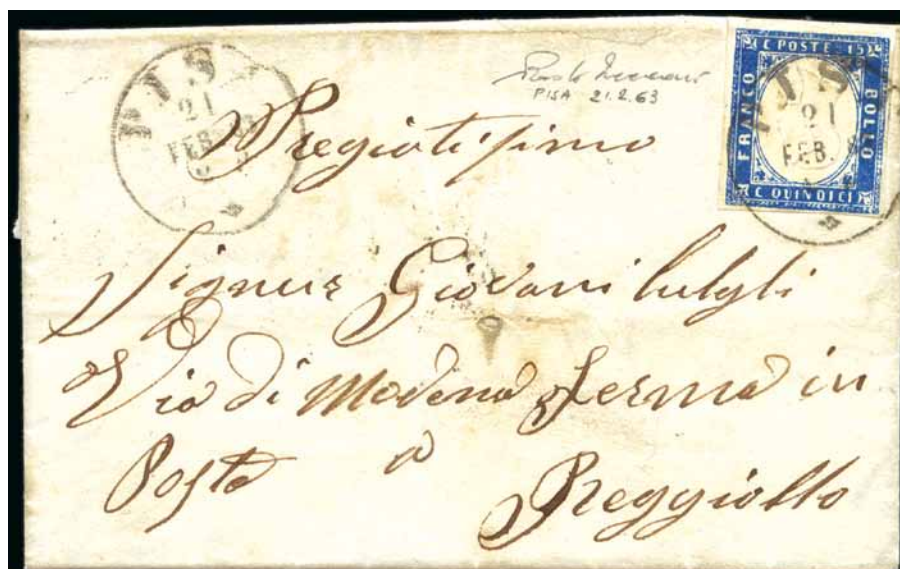 PIS
21
FEB.
PISA 21.2.63
C POSTE 15
FRANCO
BOLLO
C QUINDICI
PIS
21
FEB. 6
Pregiatissimo
Signor Giovani
Via di Modena ferma in
Posta a Reggiollo